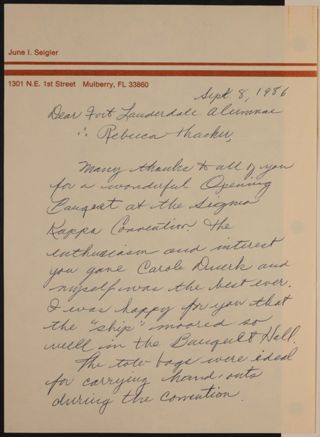 June I. Seigler
1301 N.E. 1st Street Mulberry, FL 33860
Sept. 8, 1986
Dear Fort Lauderdale Alumnae
% Rebecca Thacker,
Many thanks to all of you
for a wonderful Opening
Banquet at the Sigma
Kappa Convention. The
enthusiasm and interest
you gave Carole and
myself was the best ever.
I was happy for you that
the "ship" moored so
well in the Banquet Hall.
The tote bags were ideal
for carrying hand-outs
during the convention.